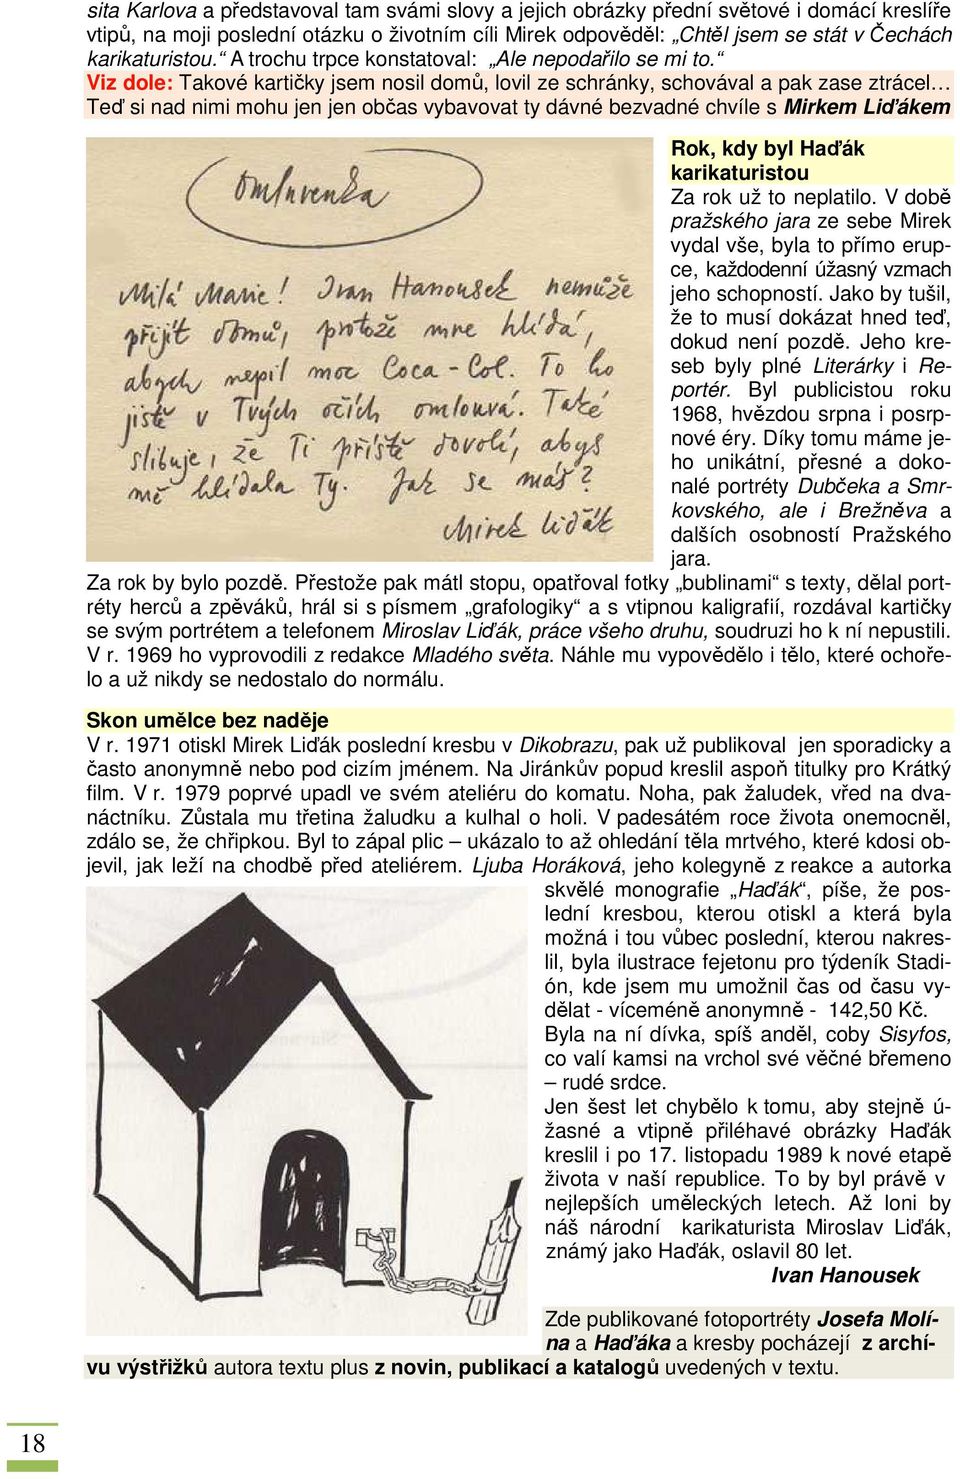 sita Karlova a představoval tam svámi slovy a jejich obrázky přední světové i domácí kreslíře
vtipů, na moji poslední otázku o životním cíli Mirek odpověděl: „Chtěl jsem se stát v Čechách
karikaturistou.“ A trochu trpce konstatoval: „Ale nepodařilo se mi to.“
Viz dole: Takové kartičky jsem nosil domů, lovil ze schránky, schovával a pak zase ztrácel…
Teď si nad nimi mohu jen jen občas vybavovat ty dávné bezvadné chvíle s Mirkem Liďákem
Omluvenka
Milá Marie! Ivan Hanousek nemůže
přijít domů, protože mne hlídá,
abych nepil moc Coca-Col. To ho
jistě v Tvých očích omlouvá. Také
slibuje, že Ti příště dovolí, abys
mě hlídala Ty. Jak se máš?
Mirek Liďák
Rok, kdy byl Haďák
karikaturistou
Za rok už to neplatilo. V době
pražského jara ze sebe Mirek
vydal vše, byla to přímo erup-
ce, každodenní úžasný vzmach
jeho schopností. Jako by tušil,
že to musí dokázat hned teď,
dokud není pozdě. Jeho kre-
seb byly plné Literárky i Re-
portér. Byl publicistou roku
1968, hvězdou srpna i posrp-
nové éry. Díky tomu máme je-
ho unikátní, přesné a doko-
nalé portréty Dubčeka a Smr-
kovského, ale i Brežněva a
dalších osobností Pražského
jara.
Za rok by bylo pozdě. Přestože pak mátl stopu, opatřoval fotky „bublinami“ s texty, dělal port-
réty herců a zpěváků, hrál si s písmem „grafologiky“ a s vtipnou kaligrafií, rozdával kartičky
se svým portrétem a telefonem Miroslav Liďák, práce všeho druhu, soudruzi ho k ní nepustili.
V r. 1969 ho vyprovodili z redakce Mladého světa. Náhle mu vypovědělo i tělo, které ochoře-
lo a už nikdy se nedostalo do normálu.
Skon umělce bez naděje
V r. 1971 otiskl Mirek Liďák poslední kresbu v Dikobrazu, pak už publikoval jen sporadicky a
často anonymně nebo pod cizím jménem. Na Jiránkův popud kreslil aspoň titulky pro Krátký
film. V r. 1979 poprvé upadl ve svém ateliéru do komatu. Noha, pak žaludek, vřed na dva-
náctníku. Zůstala mu třetina žaludku a kulhal o holi. V padesátém roce života onemocněl,
zdálo se, že chřipkou. Byl to zápal plic – ukázalo to až ohledání těla mrtvého, které kdosi ob-
jevil, jak leží na chodbě před ateliérem. Ljuba Horáková, jeho kolegyně z reakce a autorka
skvělé monografie „Haďák“, píše, že pos-
lední kresbou, kterou otiskl a která byla
možná i tou vůbec poslední, kterou nakres-
lil, byla ilustrace fejetonu pro týdeník Stadi-
ón, kde jsem mu umožnil čas od času vy-
dělat - víceméně anonymně - 142,50 Kč.
Byla na ní dívka, spíš anděl, coby Sisyfos,
co valí kamsi na vrchol své věčné břemeno
– rudé srdce.
Jen šest let chybělo k tomu, aby stejně ú-
žasné a vtipně přiléhavé obrázky Haďák
kreslil i po 17. listopadu 1989 k nové etapě
života v naší republice. To by byl právě v
nejlepších uměleckých letech. Až loni by
náš národní karikaturista Miroslav Liďák,
známý jako Haďák, oslavil 80 let.
Ivan Hanousek
Zde publikované fotoportréty Josefa Molí-
na a Haďáka a kresby pocházejí z archí-
vu výstřižků autora textu plus z novin, publikací a katalogů uvedených v textu.
18